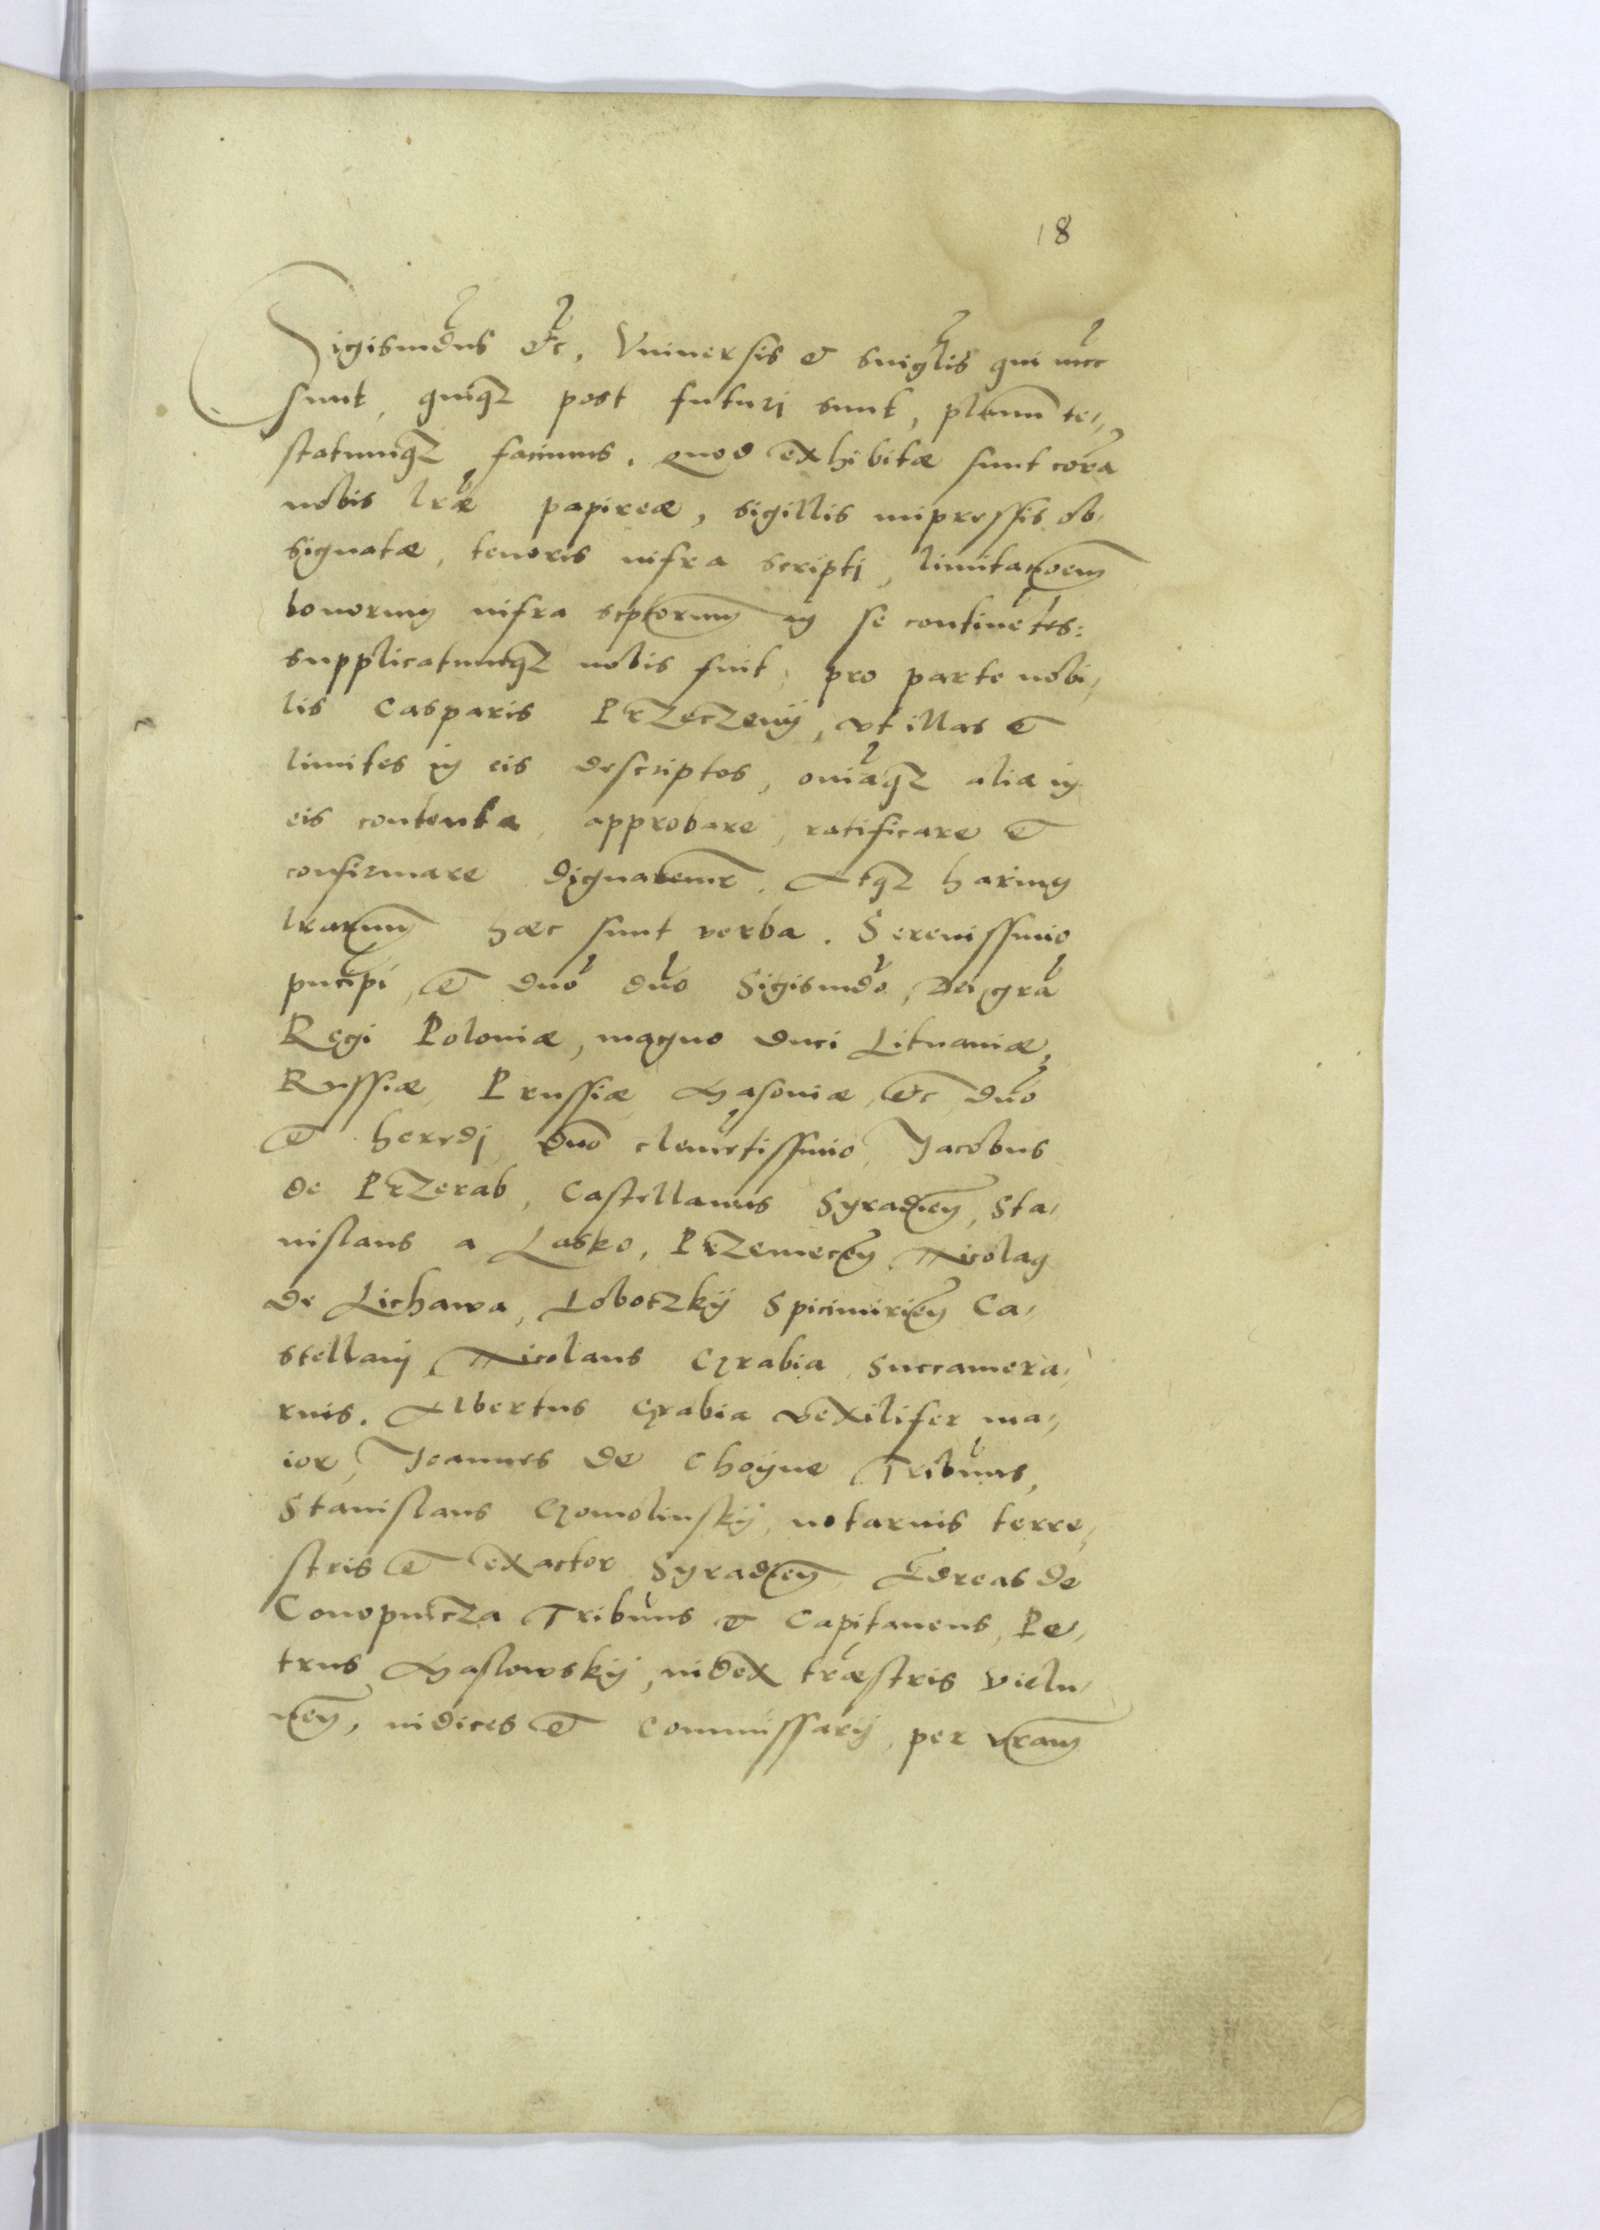 18
Sigismūdus etc, Vniuersis et singlis qui nūc
sunt, quiqz post futuri sunt, planum te-
statumqz facimus. Quod exhibitæ sunt corā
nobis lræ papireæ, sigillis impressis ob-
signatæ, tenoris infra scripti, limitacoem
bonorum infra scptorum in se continētes:
supplicatumqz nobis fuit, pro parte nobi-
lis Casparis Przeczenij, vt illas et
limites in eis descriptos, oniaqz alia in
eis contenta, approbare, ratificare et
confirmare dignaremr. Atqz harum
lrarum hæc sunt verba. Serenissimo
pncipi, et dno dno Sigismdo, Dei gra
Regi Poloniæ, magno duci Lituaniæ,
Russiæ, Prussiæ, Masoniæ, etc dno
et heredi, dno clemētissimo, Jacobus
de Przerab, Castellanus Syradien, Sta-
nislaus a Lasko, Przemecen, Nicolaus
de Lichawa, Lobotzkij Spicimirien Ca-
stellanj, Nicolaus Grabia, Succamera-
rius. Albertus Grabia vexilifer ma-
ior, Joannes de Choyne Tribunus,
Stanislaus Gomolinskij, notarius terre-
stris et exactor Syradien, Ādreas de
Conopnicza Tribunus et Capitaneus, Pe-
trus Maslowskij, iudex træstris vielu-
nen, iudices et Commissarij, per vram